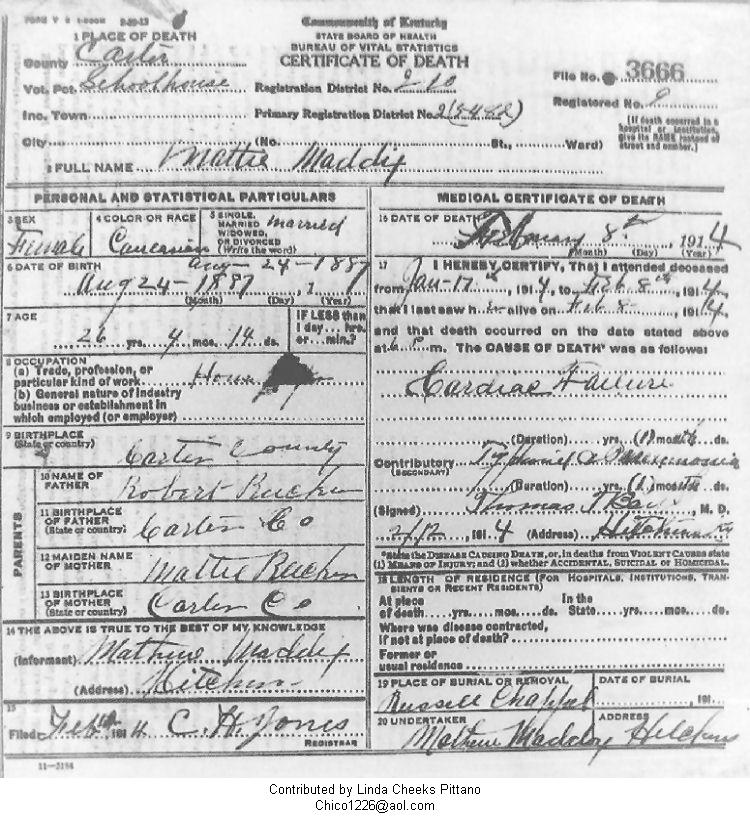 Commonwealth of Kentucky
STATE BOARD OF HEALTH
BUREAU OF VITAL STATISTICS
CERTIFICATE OF DEATH
1 PLACE OF DEATH
County Carter
Vot. Pct. Schoolhouse
Inc. Town
City (No. St., Ward)
Registration District No. 210
Primary Registration District No.
File No. 3666
Registered No. 9
[If death occurred in a hospital or institution, give its NAME instead of street and number.]
2 FULL NAME Mattie Maddix
PERSONAL AND STATISTICAL PARTICULARS
3 SEX
Female
4 COLOR OR RACE
Caucasian
5 SINGLE, MARRIED WIDOWED, OR DIVORCED (Write the word)
Married
6 DATE OF BIRTH Aug-24-1887
Aug 24-1887, 1
(Month) (Day) (Year)
7 AGE
26 yrs. 4 mos. 14 ds.
IF LESS than 1 day... hrs. or... min.?
8 OCCUPATION
(a) Trade, profession, or
particular kind of work
(b) General nature of industry
business or establishment in
which employed (or employer)
9 BIRTHPLACE
(State or country) Carter County
PARENTS
10 NAME OF FATHER Robert Rucker
11 BIRTHPLACE OF FATHER (State or country) Carter Co
12 MAIDEN NAME OF MOTHER Mattie Rucker
13 BIRTHPLACE OF MOTHER (State or country) Carter Co
14 THE ABOVE IS TRUE TO THE BEST OF MY KNOWLEDGE
(Informant) Mathew Maddix
(Address) Hitchins
15
Filed Feb, 191 C. H. Jones
REGISTRAR
11-3184
MEDICAL CERTIFICATE OF DEATH
16 DATE OF DEATH
February 8th, 1914
(Month) (Day) (Year)
17 I HEREBY CERTIFY, That I attended deceased
from Jan-17th, 1914, to Feb 8th, 1914,
that I last saw her alive on Feb 8, 1914,
and that death occurred on the date stated above
at 6 P.m. The CAUSE OF DEATH* was as follows:
Cardiac Failure
(Duration) yrs. (1) months ds.
Contributory
(SECONDARY)
(Duration) yrs. (1) months ds.
(Signed) Thomas, M. D.
2/12, 1914 (Address) Hitchins
*State the DISEASE CAUSING DEATH, or, in deaths from VIOLENT CAUSES state
(1) MEANS OF INJURY; and (2) whether ACCIDENTAL, SUICIDAL or HOMICIDAL.
18 LENGTH OF RESIDENCE (FOR HOSPITALS, INSTITUTIONS, TRANSIENTS OR RECENT RESIDENTS)
At place of death yrs. mos. ds. In the State yrs. mos. ds.
Where was disease contracted,
if not at place of death?
Former or
usual residence
19 PLACE OF BURIAL OR REMOVAL
Russell Chappel
DATE OF BURIAL
, 191
20 UNDERTAKER
Mathew Maddox
ADDRESS
Hitchins
Contributed by Linda Cheeks Pittano
Chico1226@aol.com